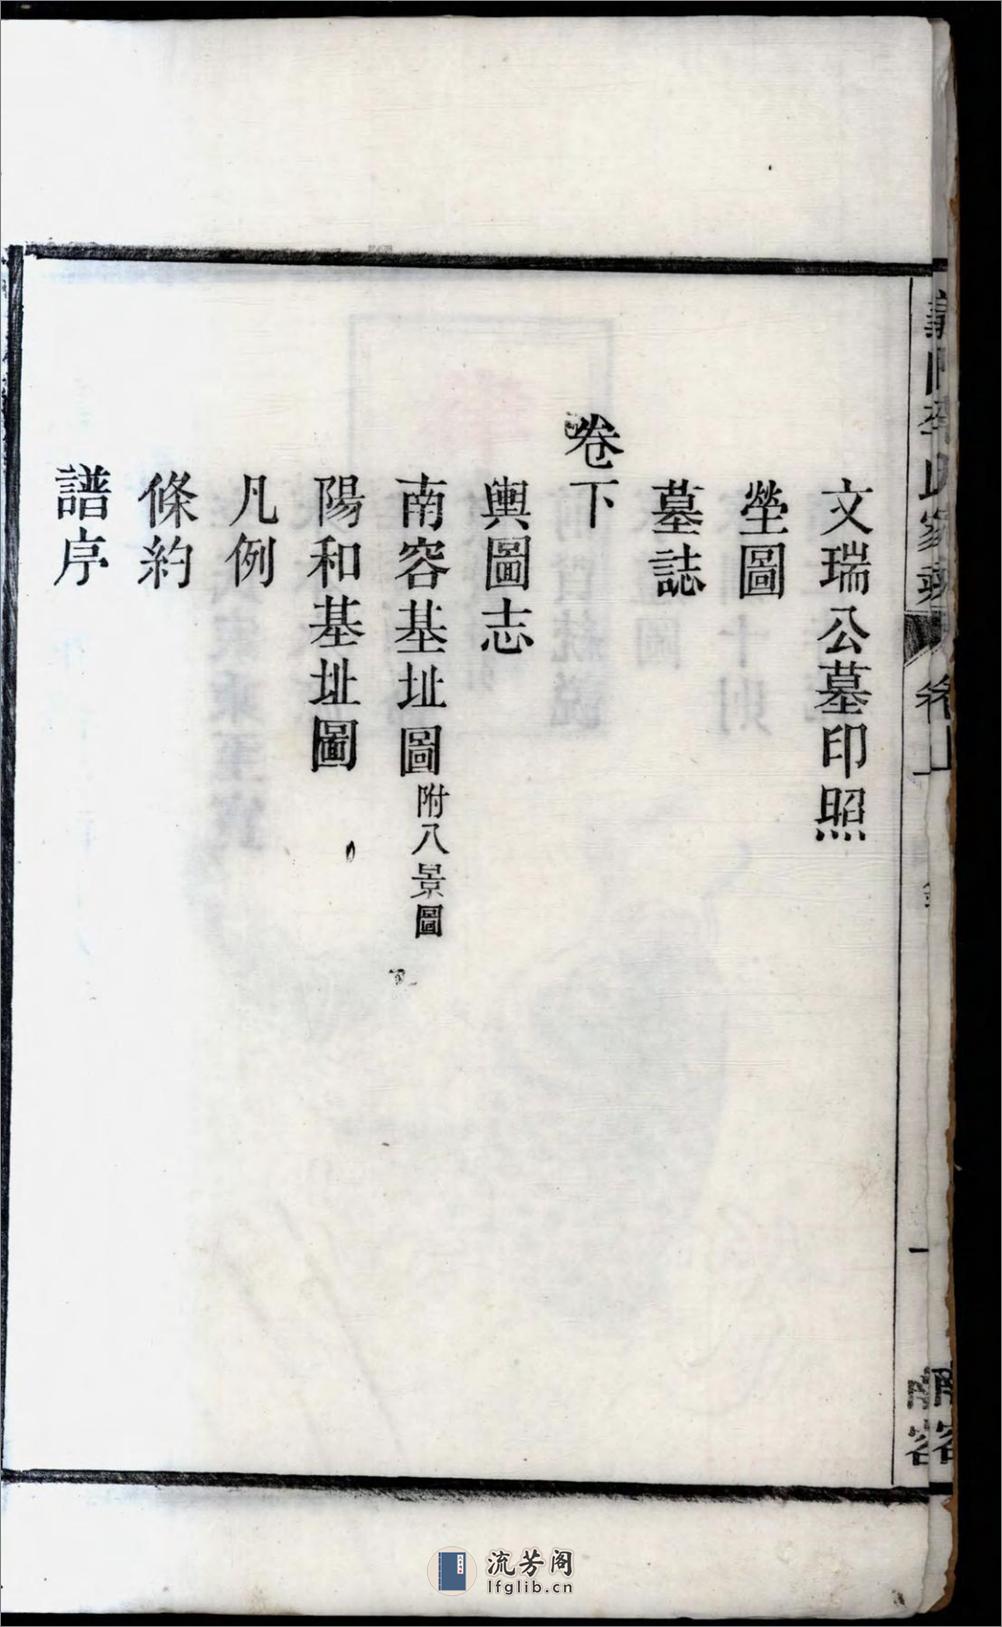 文瑞公墓印照
塋圖
墓誌
卷下
輿圖志
南容基址圖附八景圖
陽和基址圖
凡例
條約
譜序
卷上
一
南容
流芳阁
lfglib.cn